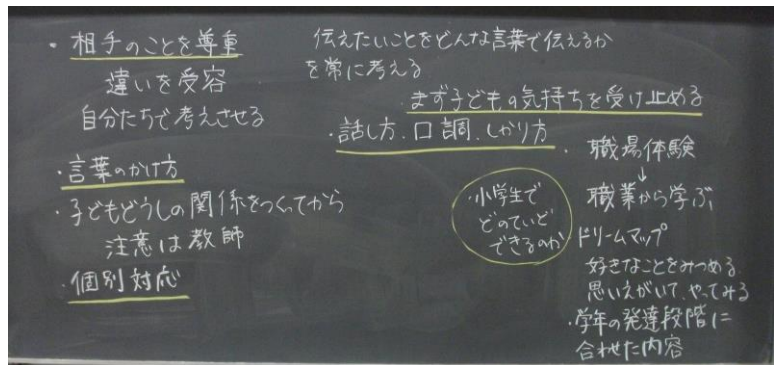 ・相手のことを尊重
違いを受容
自分たちで考えさせる
・言葉のかけ方
・子どもどうしの関係をつくってから
注意は教師
・個別対応
伝えたいことをどんな言葉で伝えるか
を常に考える
・まず子どもの気持ちを受け止める
・話し方、口調、しかり方
・小学生で
どのていど
できるのか
・職場体験
↓
職業から学ぶ
ドリームマップ
好きなことをみつめる
思いえがいて、やってみる
・学年の発達段階に
合わせた内容